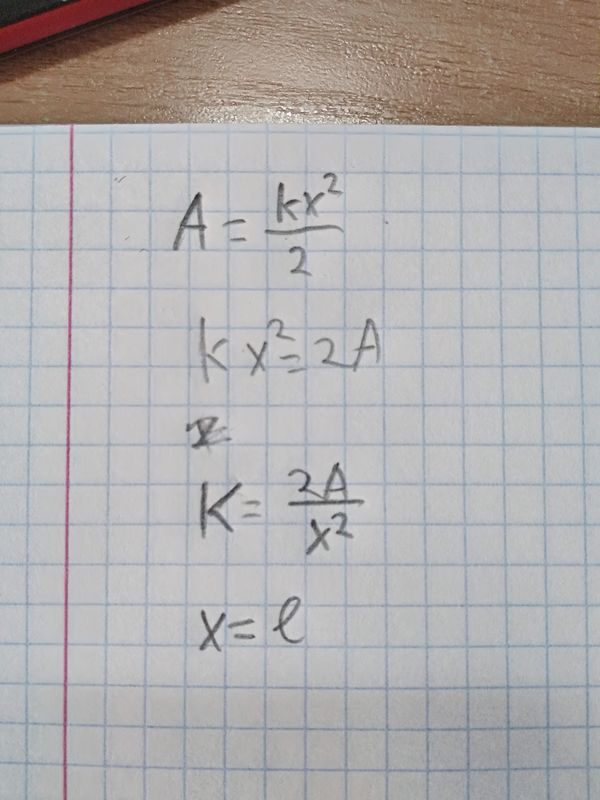 A = kx²/2
kx² = 2A
K = 2A/x²
x = ℓ